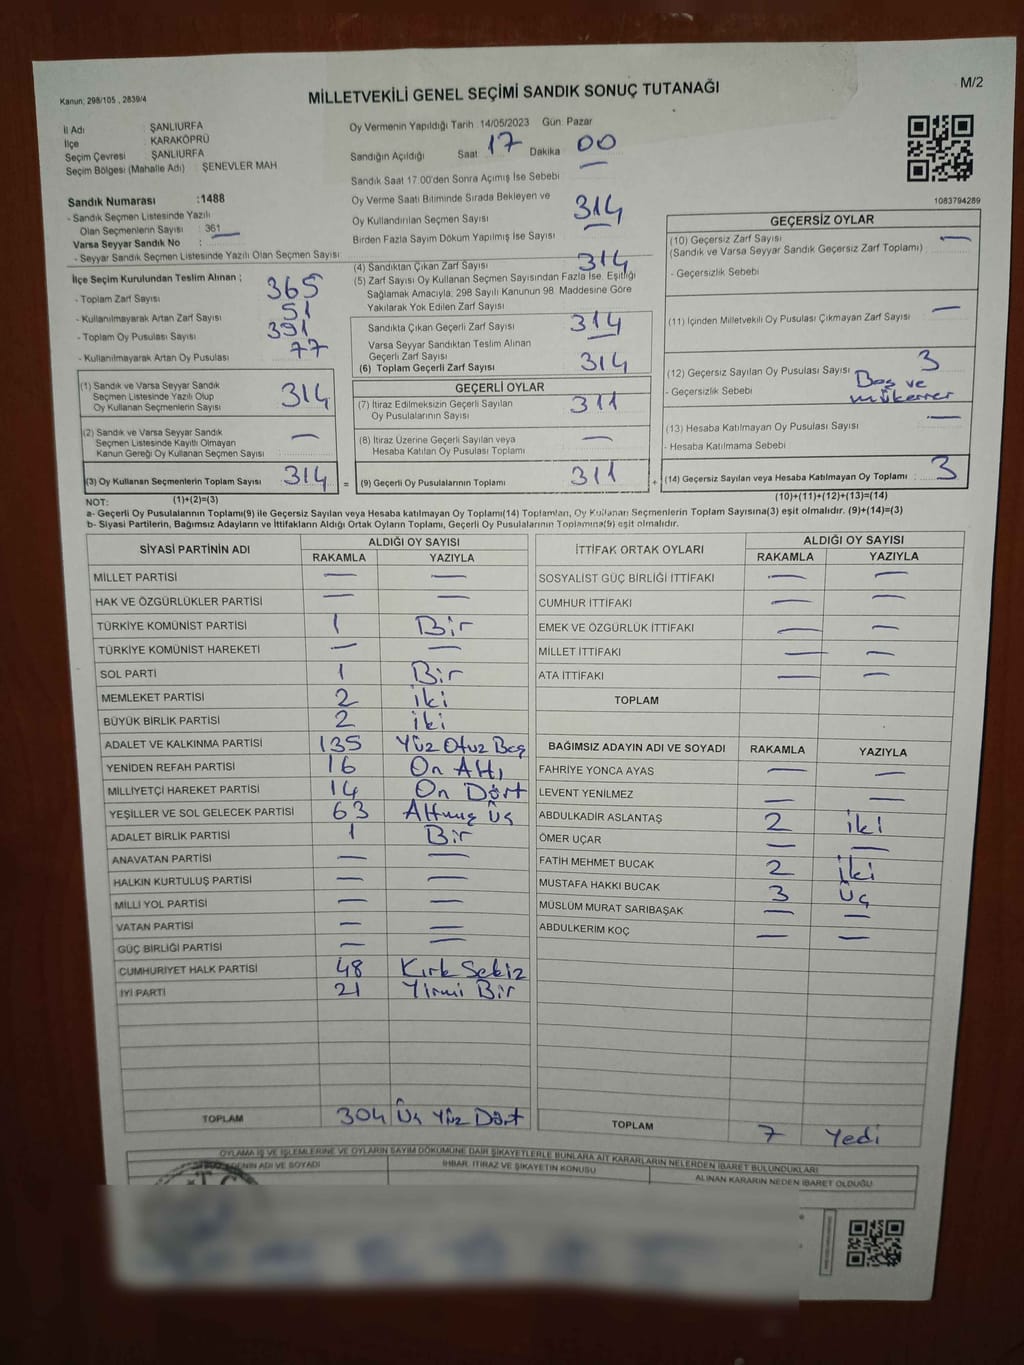 Kanun: 298/105 , 2839/4
MİLLETVEKİLİ GENEL SEÇİMİ SANDIK SONUÇ TUTANAĞI
M/2
İl Adı : ŞANLIURFA
İlçe : KARAKÖPRÜ
Seçim Çevresi : ŞANLIURFA
Seçim Bölgesi (Mahalle Adı) : ŞENEVLER MAH
Sandık Numarası :1488
- Sandık Seçmen Listesinde Yazılı
Olan Seçmenlerin Sayısı : 361
Varsa Seyyar Sandık No :
- Seyyar Sandık Seçmen Listesinde Yazılı Olan Seçmen Sayısı
Oy Vermenin Yapıldığı Tarih :14/05/2023 Gün: Pazar
Sandığın Açıldığı Saat 17 Dakika 00
Sandık Saat 17:00'den Sonra Açımış İse Sebebi —
Oy Verme Saati Bitiminde Sırada Bekleyen ve
Oy Kullandırılan Seçmen Sayısı 314
Birden Fazla Sayım Döküm Yapılmış İse Sayısı —
1083794289
İlçe Seçim Kurulundan Teslim Alınan ;
- Toplam Zarf Sayısı 365
- Kullanılmayarak Artan Zarf Sayısı 51
- Toplam Oy Pusulası Sayısı 391
- Kullanılmayarak Artan Oy Pusulası 77
(1) Sandık ve Varsa Seyyar Sandık
Seçmen Listesinde Yazılı Olup
Oy Kullanan Seçmenlerin Sayısı 314
(2) Sandık ve Varsa Seyyar Sandık
Seçmen Listesinde Kayıtlı Olmayan
Kanun Gereği Oy Kullanan Seçmen Sayısı —
(3) Oy Kullanan Seçmenlerin Toplam Sayısı 314 =
(4) Sandıktan Çıkan Zarf Sayısı 314
(5) Zarf Sayısı Oy Kullanan Seçmen Sayısından Fazla İse, Eşitliği
Sağlamak Amacıyla, 298 Sayılı Kanunun 98. Maddesine Göre
Yakılarak Yok Edilen Zarf Sayısı
Sandıkta Çıkan Geçerli Zarf Sayısı 314
Varsa Seyyar Sandıktan Teslim Alınan
Geçerli Zarf Sayısı —
(6) Toplam Geçerli Zarf Sayısı 314
GEÇERLİ OYLAR
(7) İtiraz Edilmeksizin Geçerli Sayılan
Oy Pusulalarının Sayısı 311
(8) İtiraz Üzerine Geçerli Sayılan veya
Hesaba Katılan Oy Pusulası Toplamı —
(9) Geçerli Oy Pusulalarının Toplamı 311 +
GEÇERSİZ OYLAR
(10) Geçersiz Zarf Sayısı —
(Sandık ve Varsa Seyyar Sandık Geçersiz Zarf Toplamı)
- Geçersizlik Sebebi
(11) İçinden Milletvekili Oy Pusulası Çıkmayan Zarf Sayısı —
(12) Geçersiz Sayılan Oy Pusulası Sayısı 3
- Geçersizlik Sebebi Boş ve
mükerrer
(13) Hesaba Katılmayan Oy Pusulası Sayısı —
- Hesaba Katılmama Sebebi
(14) Geçersiz Sayılan veya Hesaba Katılmayan Oy Toplamı : 3
NOT: (1)+(2)=(3)
(10)+(11)+(12)+(13)=(14)
a- Geçerli Oy Pusulalarının Toplamı(9) ile Geçersiz Sayılan veya Hesaba katılmayan Oy Toplamı(14) Toplamları, Oy Kullanan Seçmenlerin Toplam Sayısına(3) eşit olmalıdır. (9)+(14)=(3)
b- Siyasi Partilerin, Bağımsız Adayların ve İttifakların Aldığı Ortak Oyların Toplamı, Geçerli Oy Pusulalarının Toplamına(9) eşit olmalıdır.
SİYASİ PARTİNİN ADI ALDIĞI OY SAYISI
RAKAMLA YAZIYLA
MİLLET PARTİSİ — —
HAK VE ÖZGÜRLÜKLER PARTİSİ — —
TÜRKİYE KOMÜNİST PARTİSİ 1 Bir
TÜRKİYE KOMÜNİST HAREKETİ — —
SOL PARTİ 1 Bir
MEMLEKET PARTİSİ 2 iki
BÜYÜK BİRLİK PARTİSİ 2 iki
ADALET VE KALKINMA PARTİSİ 135 Yüz Otuz Beş
YENİDEN REFAH PARTİSİ 16 On Altı
MİLLİYETÇİ HAREKET PARTİSİ 14 On Dört
YEŞİLLER VE SOL GELECEK PARTİSİ 63 Altmış Üç
ADALET BİRLİK PARTİSİ 1 Bir
ANAVATAN PARTİSİ — —
HALKIN KURTULUŞ PARTİSİ — —
MİLLİ YOL PARTİSİ — —
VATAN PARTİSİ — —
GÜÇ BİRLİĞİ PARTİSİ — —
CUMHURİYET HALK PARTİSİ 48 Kırk Sekiz
İYİ PARTİ 21 Yirmi Bir
TOPLAM 304 Üç Yüz Dört
İTTİFAK ORTAK OYLARI ALDIĞI OY SAYISI
RAKAMLA YAZIYLA
SOSYALİST GÜÇ BİRLİĞİ İTTİFAKI — —
CUMHUR İTTİFAKI — —
EMEK VE ÖZGÜRLÜK İTTİFAKI — —
MİLLET İTTİFAKI — —
ATA İTTİFAKI — —
TOPLAM
BAĞIMSIZ ADAYIN ADI VE SOYADI RAKAMLA YAZIYLA
FAHRİYE YONCA AYAS — —
LEVENT YENİLMEZ — —
ABDULKADİR ASLANTAŞ 2 iki
ÖMER UÇAR — —
FATİH MEHMET BUCAK 2 iki
MUSTAFA HAKKI BUCAK 3 Üç
MÜSLÜM MURAT SARIBAŞAK — —
ABDULKERİM KOÇ — —
TOPLAM 7 Yedi
OYLAMA İŞ VE İŞLEMLERİNE VE OYLARIN SAYIM DÖKÜMÜNE DAİR ŞİKAYETLERLE BUNLARA AİT KARARLARIN NELERDEN İBARET BULUNDUKLARI
ADI VE SOYADI
İHBAR, İTİRAZ VE ŞİKAYETİN KONUSU
ALINAN KARARIN NEDEN İBARET OLDUĞU
T.C.